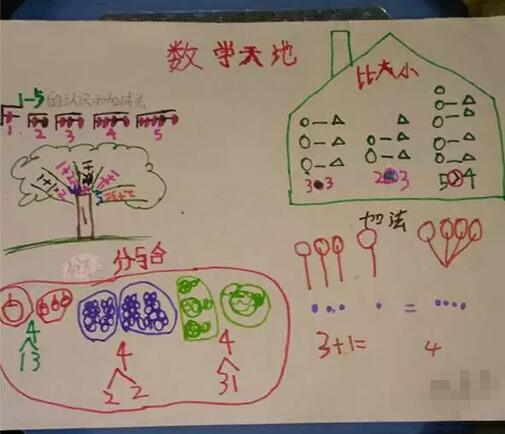 数学天地
1-5的认识和加减法
1 2 3 4 5
比大小
3 3 2 3 5>4
分与合
4
1 3
4
2 2
4
3 1
加法
=
3+1= 4